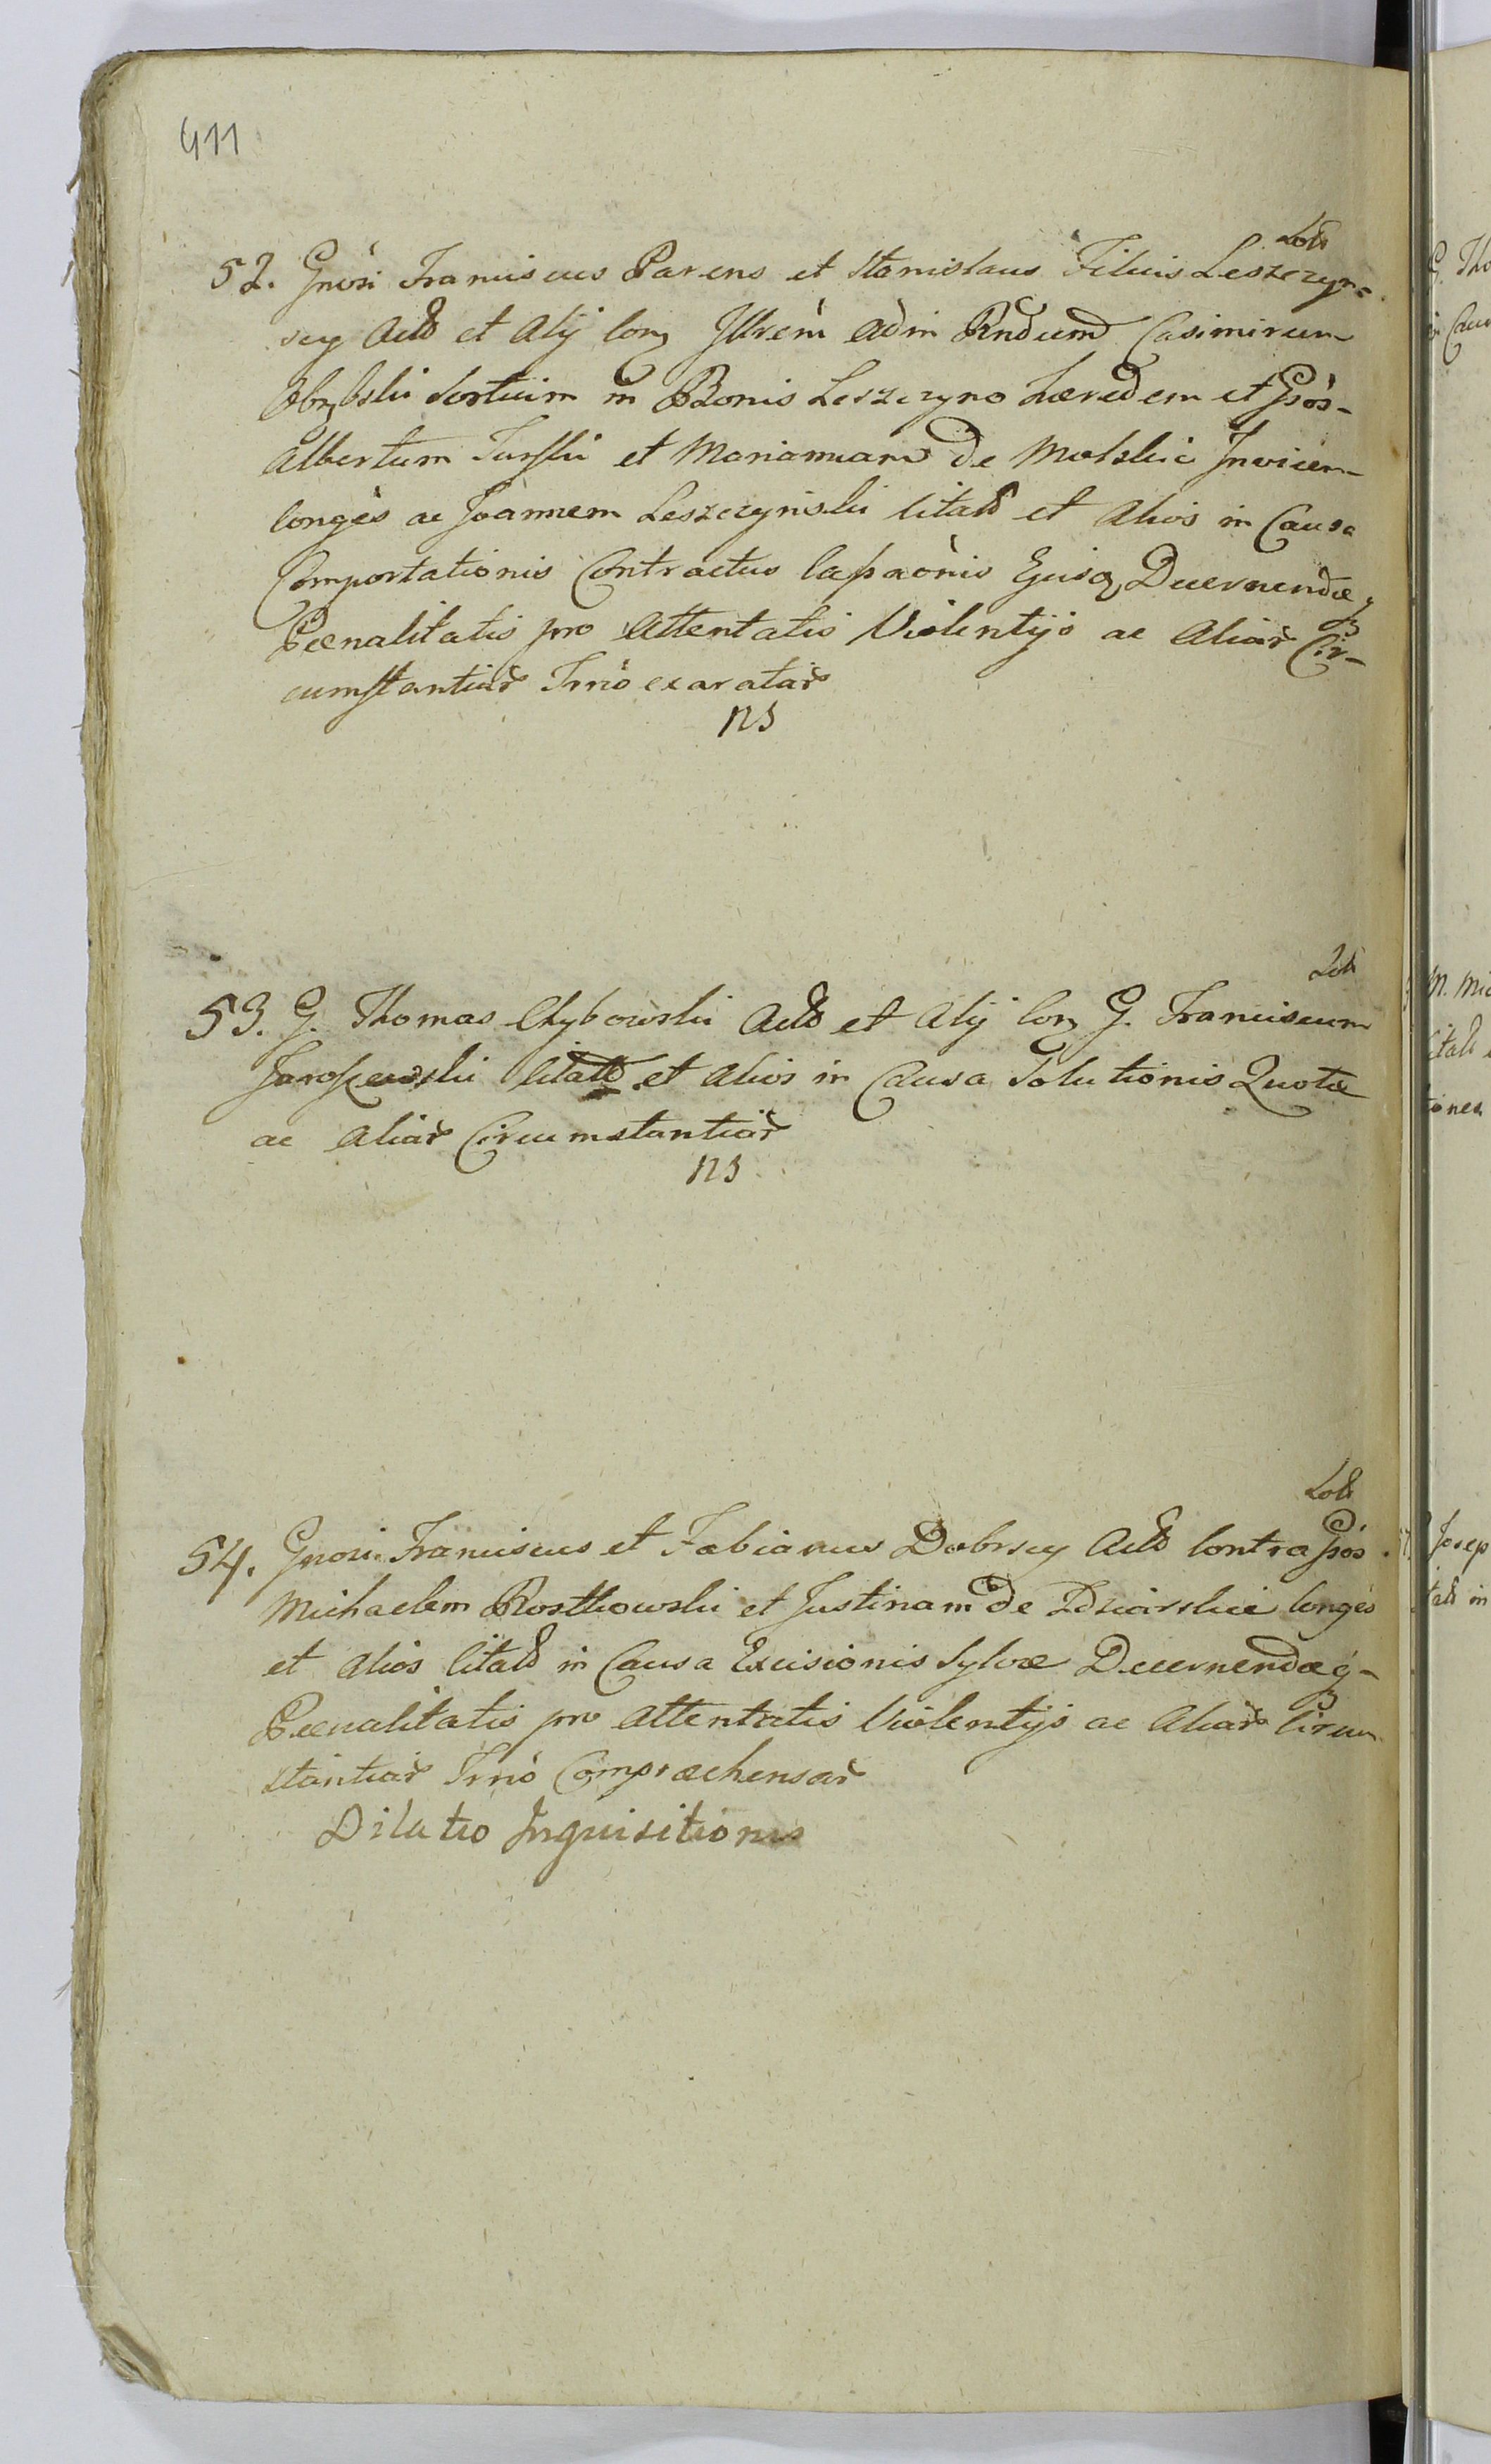 411
52. Gnosi Franciscus Parens et Stanislaus Filius Leszczyn-
scy Acto et Alij Con Illrem Adm Rndum Casimirum
Sortium in Bonis Leszczyno Hæredem et Gsos
Albertum Turski et Mariannam De Molskie Invicem
Conges ac Joannem Leszczynski Citato et Alios in Causa
Comportationis Contractus Ejusq Decernendæ q
Pœnalitatis pro Attentatis Violentijs ac Aliar Cir-
cumstantiar Trno exaratar
NS
53. G. Thomas Chybowski Acto et Alij Con G. Franciscum
Jaroszewski Citato et Alios in Causa Solutionis Quotæ
ac Aliar Circumstantiar
NS
54. Gnosi Franciscus et Fabianus Dobrscy Acto Contra Gsos
Michaelem Rostkowski et Justinam De Zdziarskie Conges
et Alios Citato in Causa Excisionis Sylvæ Decernendæ q-
Pœnalitatis pro Attentatis Violentijs ac Aliar Circum
stantiar Trno Compræhensar
Dilatio Inquisitionis